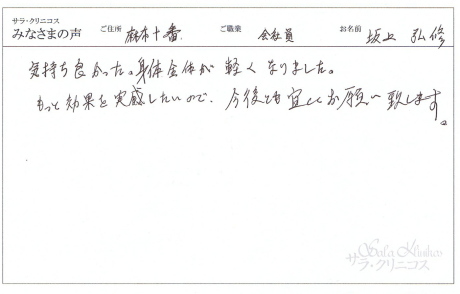 サラ・クリニコス
みなさまの声 ご住所 麻布十番 ご職業 会社員 お名前 坂上 弘修
気持ち良かった。身体全体が軽くなりました。
もっと効果を実感したいので、今後とも宜しくお願い致します。
Sala Klinikos
サラ・クリニコス